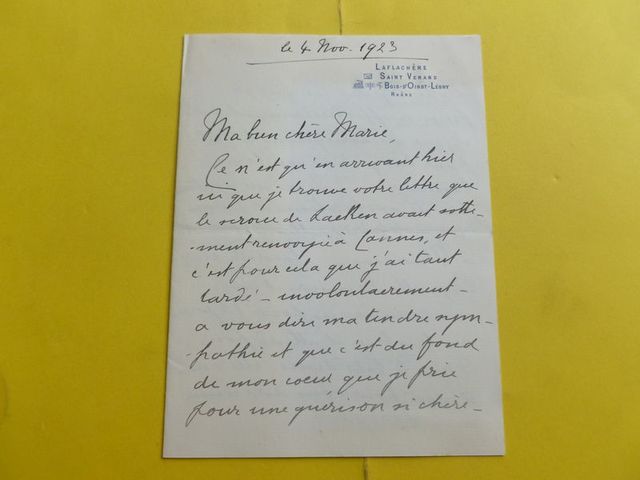 le 4 Nov. 1923
LAFLACHÈRE
SAINT VERAND
BOIS-D'OINGT-LEGNY
RHÔNE
Ma bien chère Marie,
Ce n'est qu'en arrivant hier
ici que je trouve votre lettre que
le service de Laeken avait sotte-
-ment renvoyée à Cannes, et
c'est pour cela que j'ai tant
tardé - involontairement -
a vous dire ma tendre sym-
-pathie et que c'est du fond
de mon coeur que je prie
pour une guérison si chère-